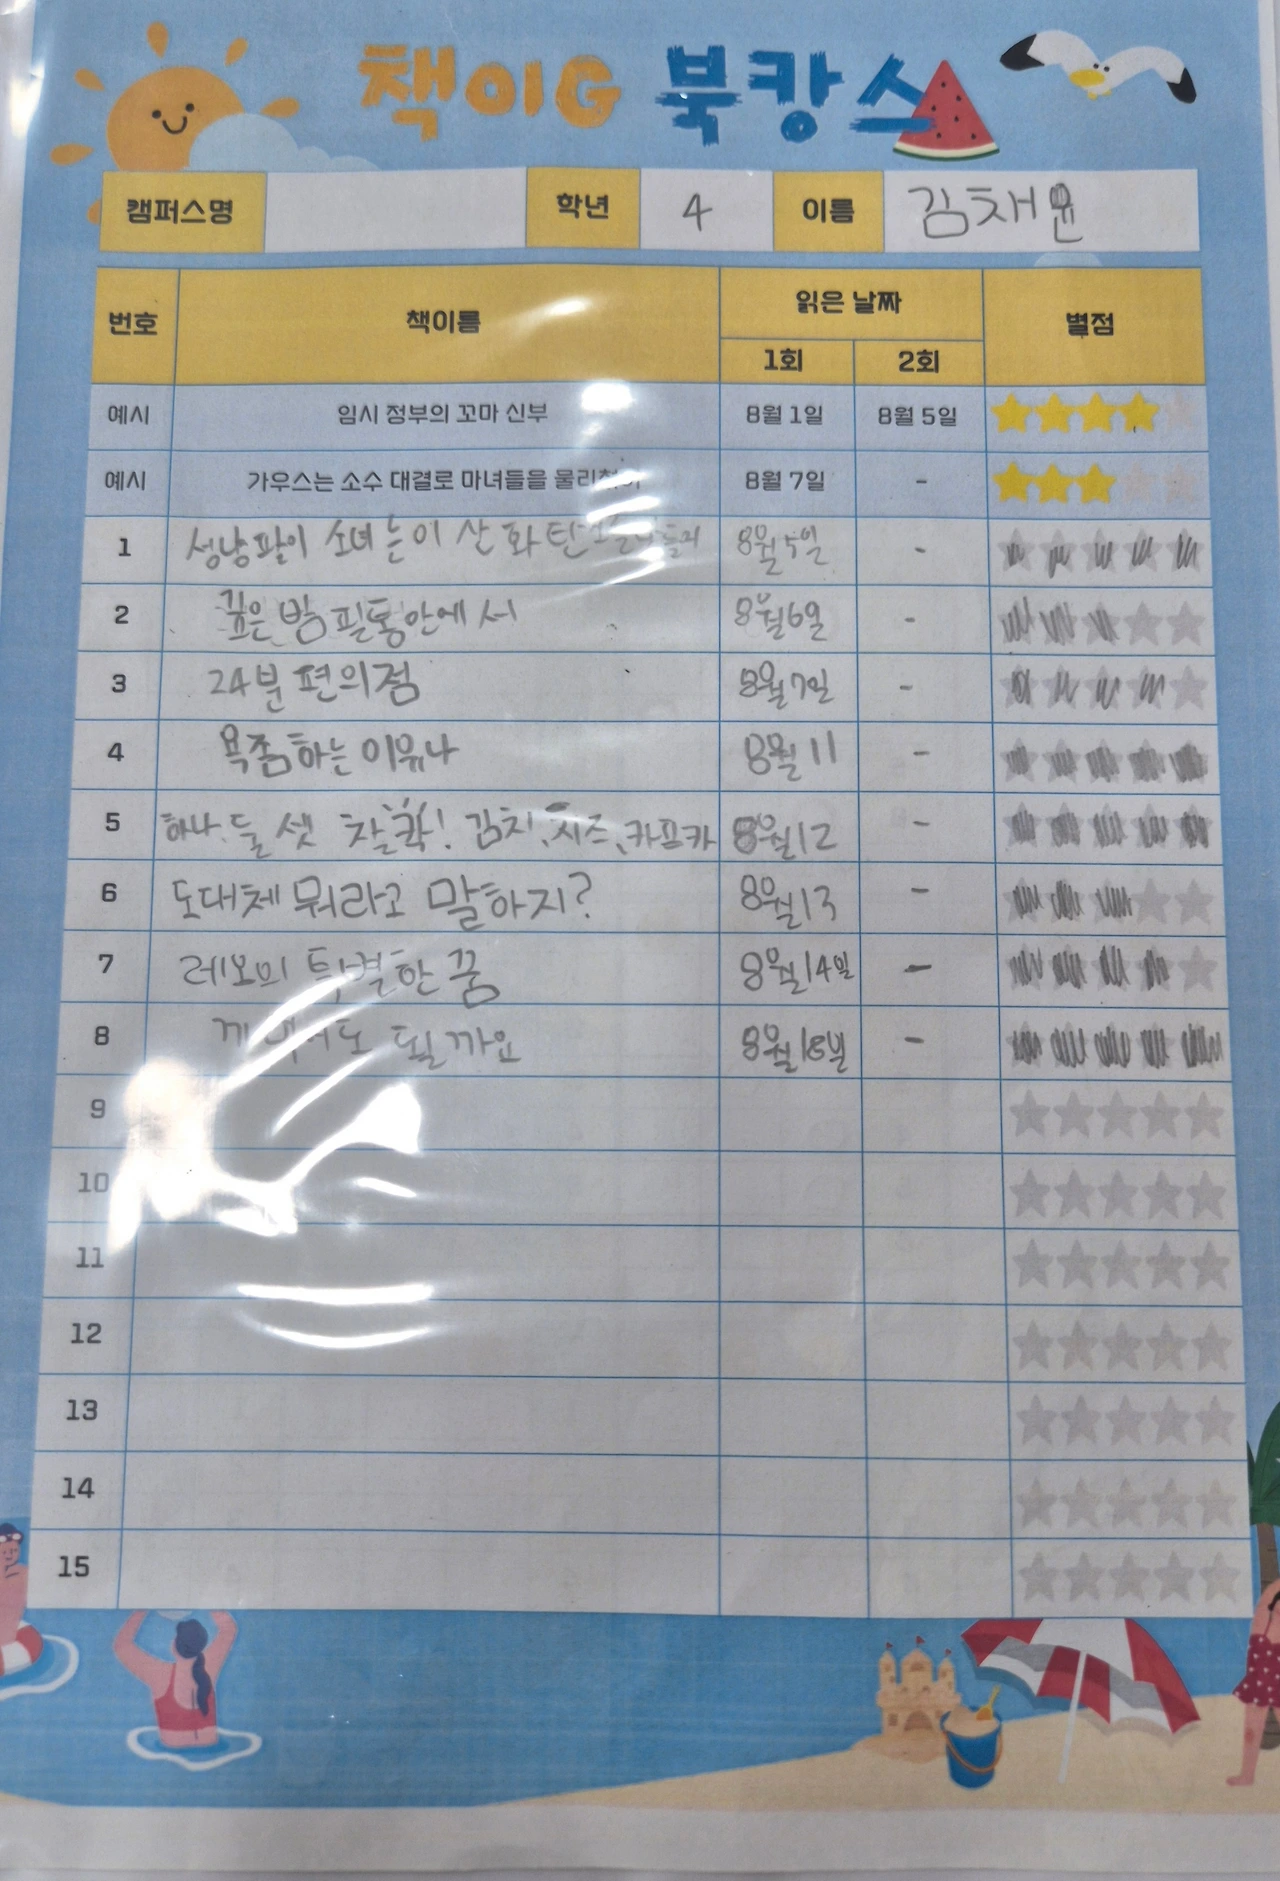 책이G 북캉스
캠퍼스명 학년 4 이름 김채윤
번호 책이름 읽은 날짜 별점
1회 2회
예시 임시 정부의 꼬마 신부 8월 1일 8월 5일
예시 가우스는 소수 대결로 마녀들을 물리쳤어 8월 7일 -
1 성냥팔이 소녀는 이산화탄소를 8월 5일 -
2 깊은 밤 필통 안에서 8월 6일 -
3 24분 편의점 8월 7일 -
4 욕좀하는 이유나 8월 11 -
5 하나.둘 셋 찰칵! 김치,치즈,카프카 8월 12 -
6 도대체 뭐라고 말하지? 8월 13 -
7 레오의 특별한 꿈 8월 14일 -
8 될까요 8월 18분 -
9
10
11
12
13
14
15